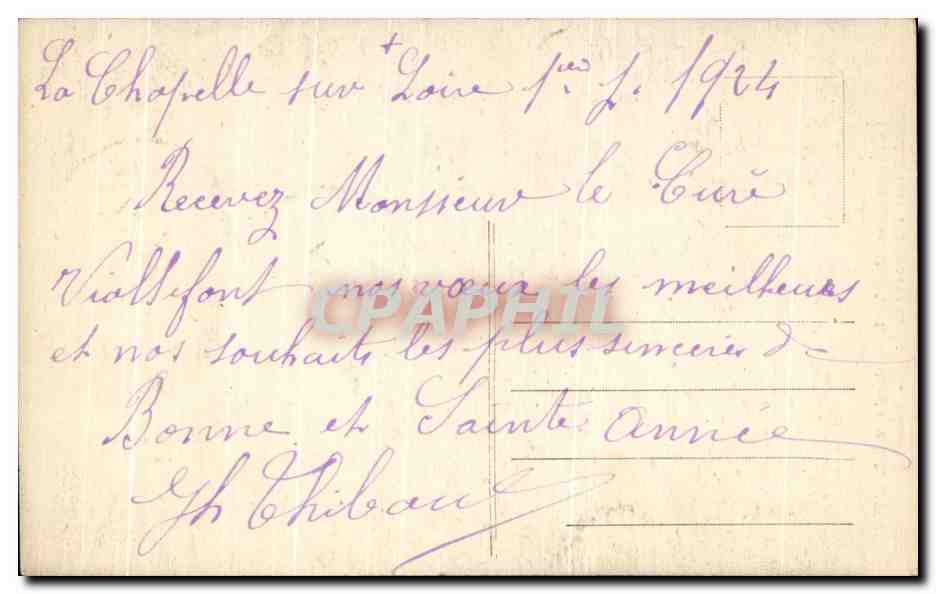 La Chapelle sur Loire 1er j. 1924
Recevez Monsieur le Curé
Viollefont nos vœux les meilleurs
et nos souhaits les plus sincères de
Bonne et Sainte année
Gh Thibaut
CPAPHIL